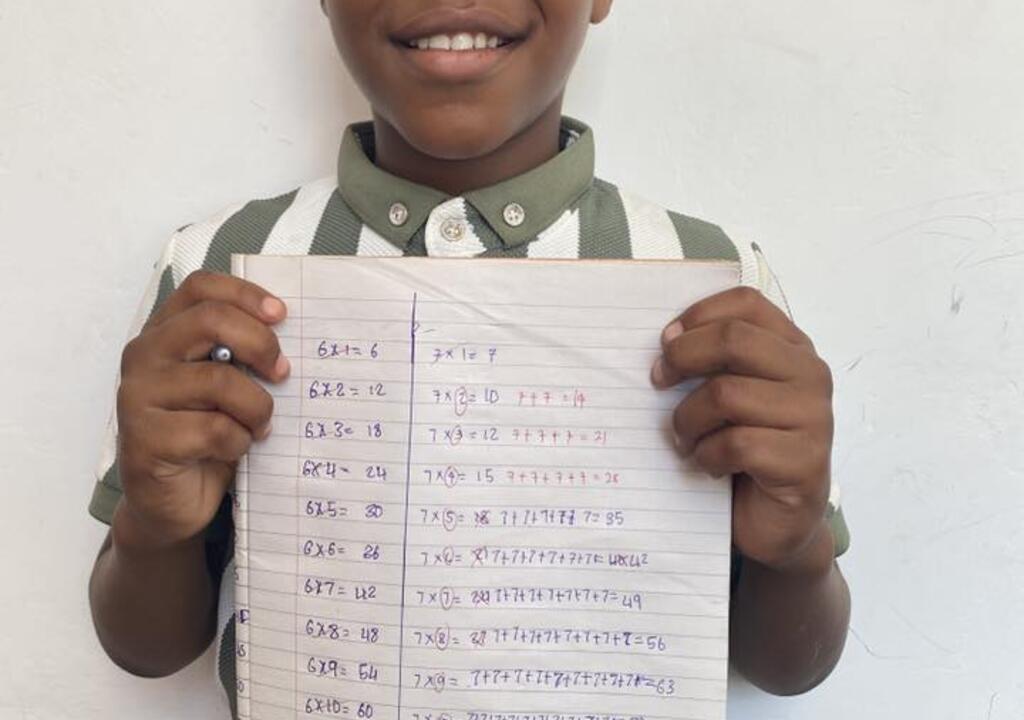 6×1= 6
6×2= 12
6×3= 18
6×4= 24
6×5= 30
6×6= 26
6×7= 42
6×8= 48
6×9= 54
6×10= 60
7×1= 7
7×2= 10 7+7=14
7×3=12 7+7+7=21
7×4= 15 7+7+7+7=28
7×5= 7+7+7+7+7=35
7×6= 7+7+7+7+7+7= 42
7×7= 7+7+7+7+7+7+7=49
7×8= 7+7+7+7+7+7+7+7=56
7×9= 7+7+7+7+7+7+7+7+7=63